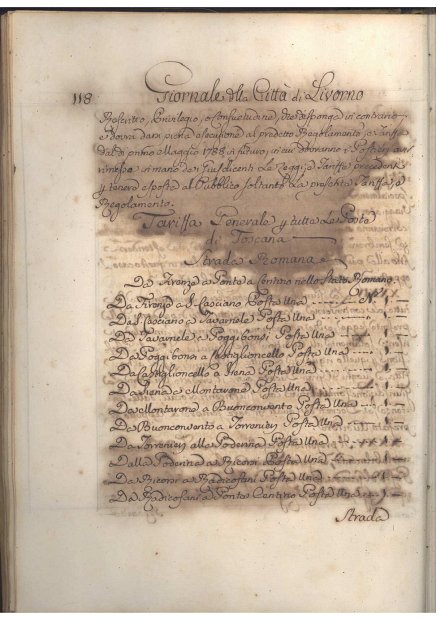 118
Giornale della Città di Livorno
Rescritto, Privilegio, o Consuetudine, che disponga in contrario
e dovrà darsi piena esecuzione al predetto Regolamento, e Tariffa
dal dì primo Maggio 1788 in futuro, in cui dovranno i Postieri
rimettere in mano de i Giusdicenti le Leggi, e Tariffe precedenti
e tenere esposte al Pubblico soltanto la presente Tariffa, e
Regolamento.
Tariffa Generale p tutte le Poste
di Toscana
Strada Romana
Da Firenze a Ponte a Centino nello Stato Romano
Da Firenze a S. Casciano Poste Una 1
Da S. Casciano a Tavarnele Poste Una 1
Da Tavarnele a Poggibonsi Poste Una 1
Da Poggibonsi a Castiglioncello Poste Una 1
Da Castiglioncello a Siena Poste Una 1
Da Siena a Montarone Poste Una 1
Da Montarone a Buonconvento Poste Una 1
Da Buonconvento a Torrenieri Poste Una 1
Da Torrenieri alla Poderina Poste Una 1
Dalla Poderina a Ricorsi Poste Una 1
Da Ricorsi a Radicofani Poste Una 1
Da Radicofani a Ponte Centino Poste Una 1
Strada